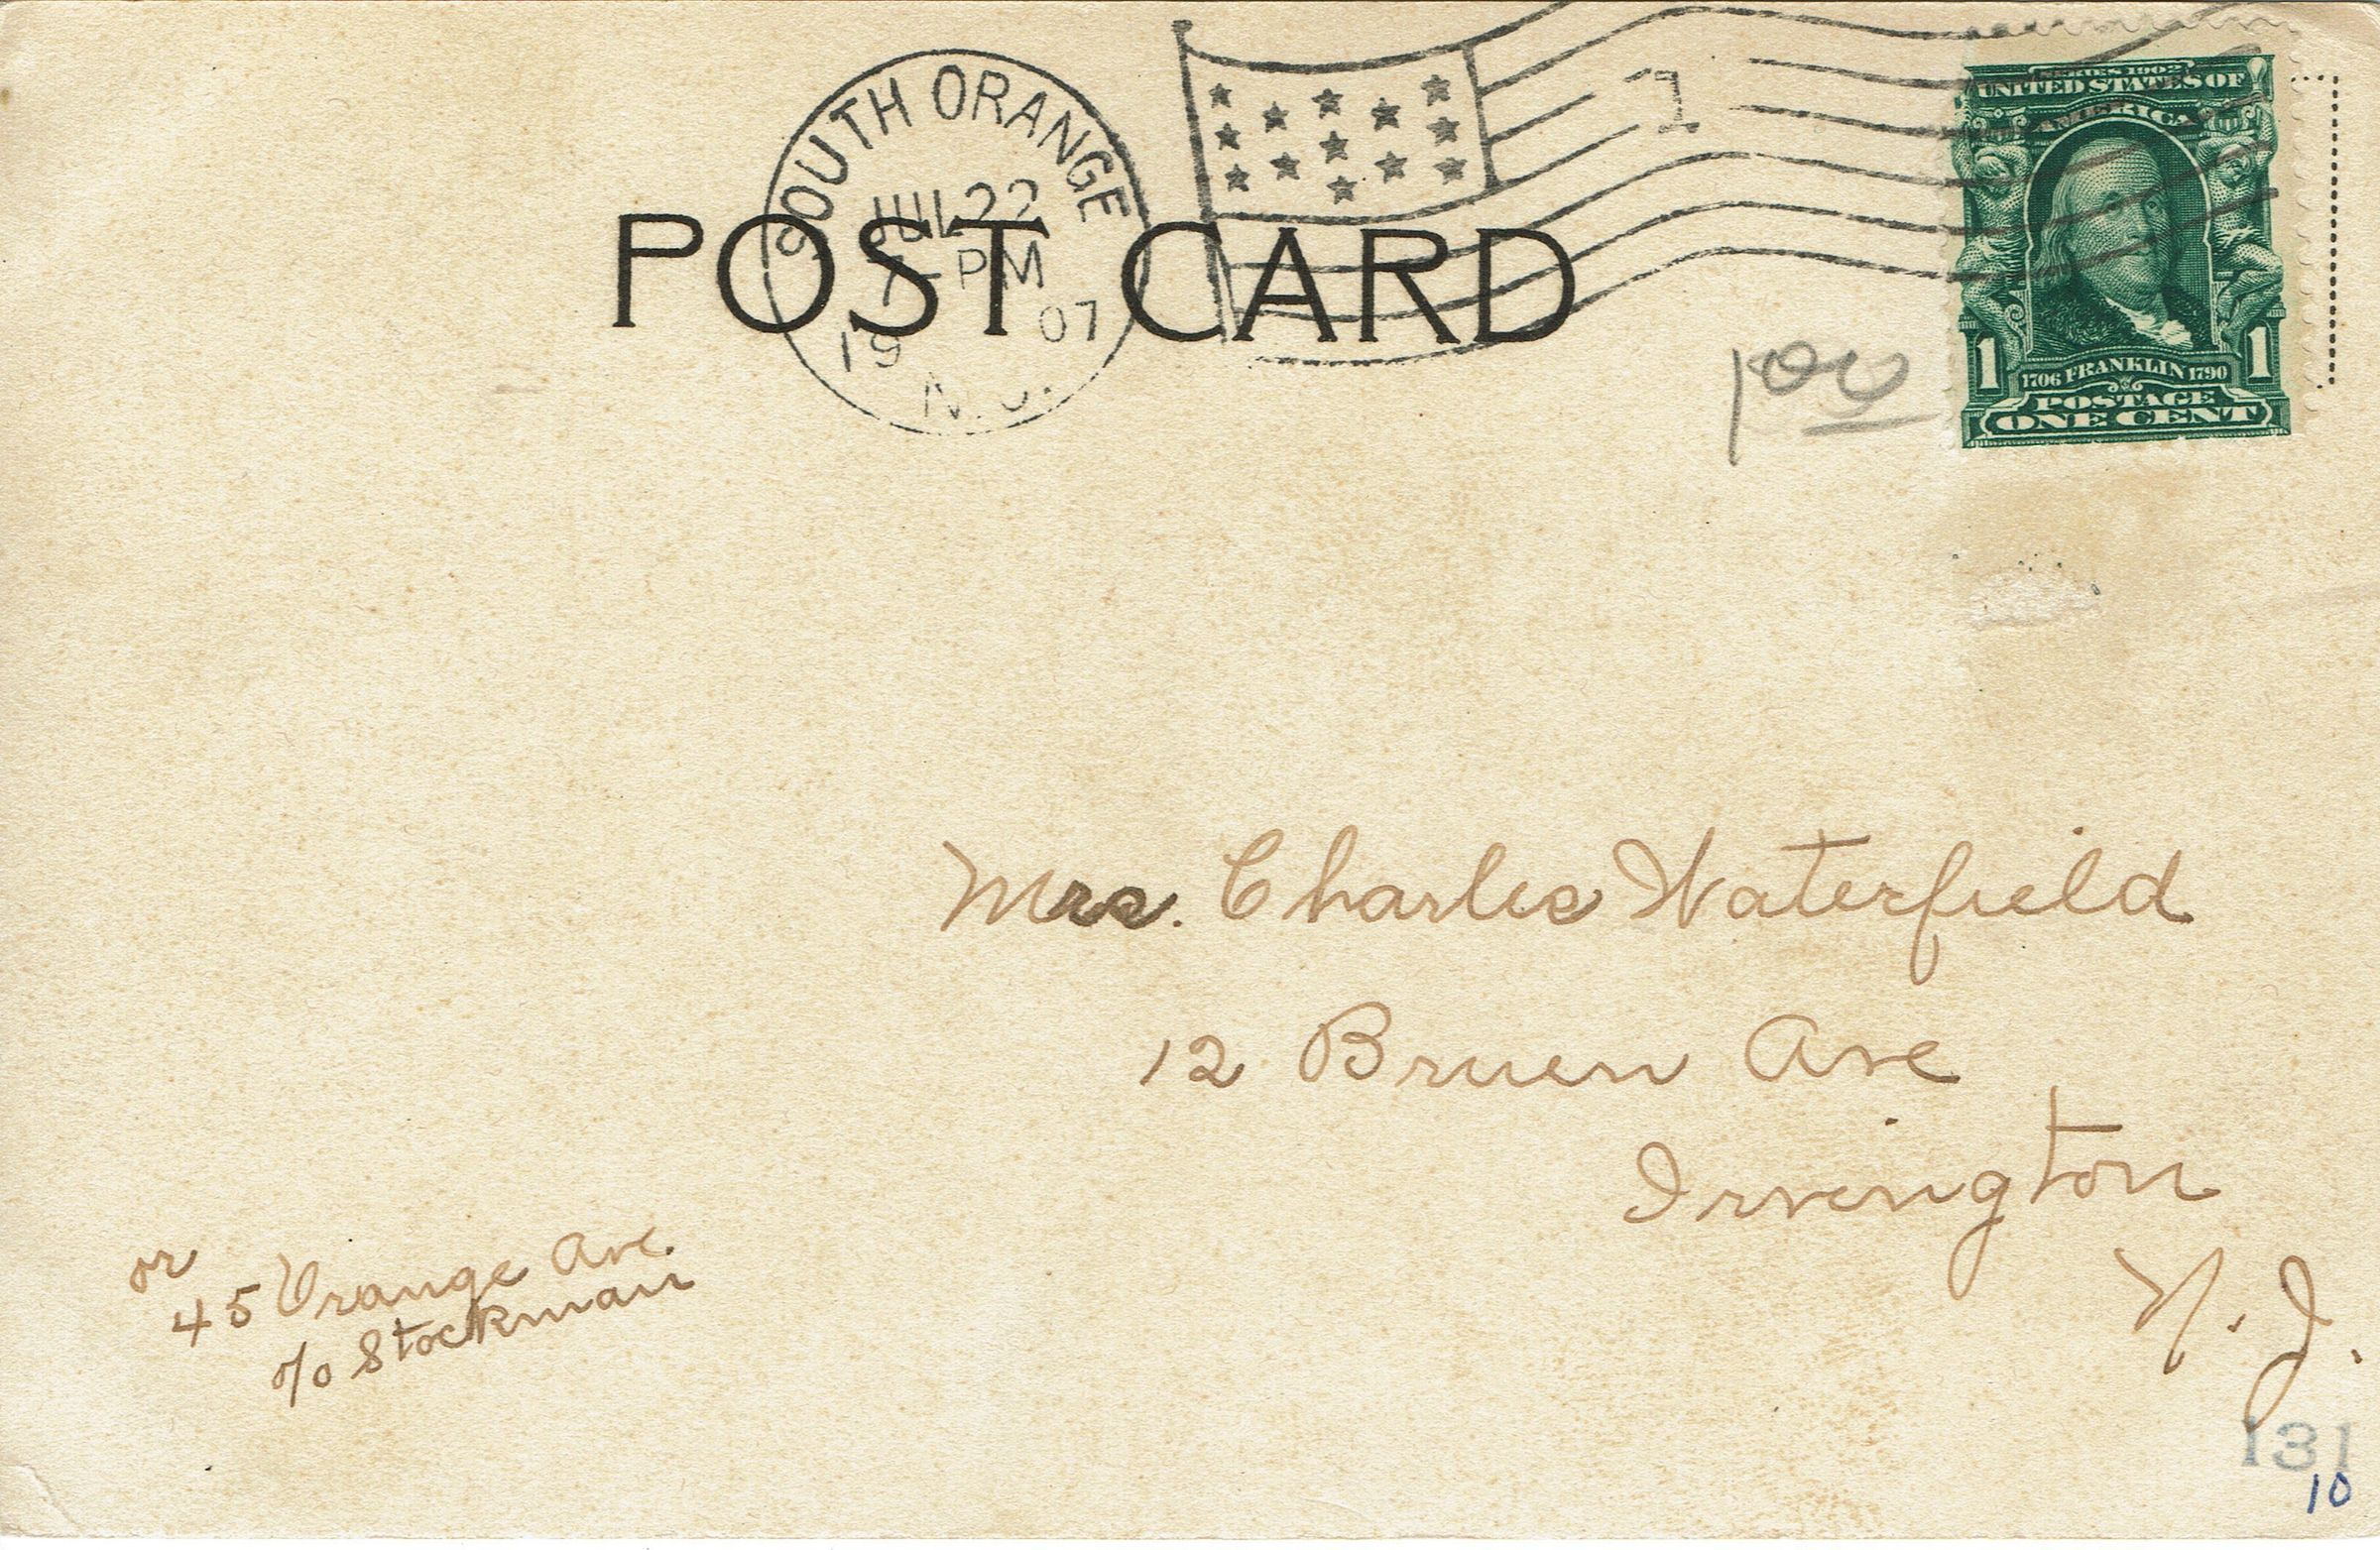 SOUTH ORANGE
JUL 22
7-PM
19 07
N.J.
1
POST CARD
SERIES 1902
UNITED STATES OF
AMERICA
1 1706 FRANKLIN 1790 1
POSTAGE
ONE CENT
100
Mrs. Charles Waterfield
12 Bruen Ave
Irvington
N. J.
or
45 Orange Ave.
c/o Stockman
131
10